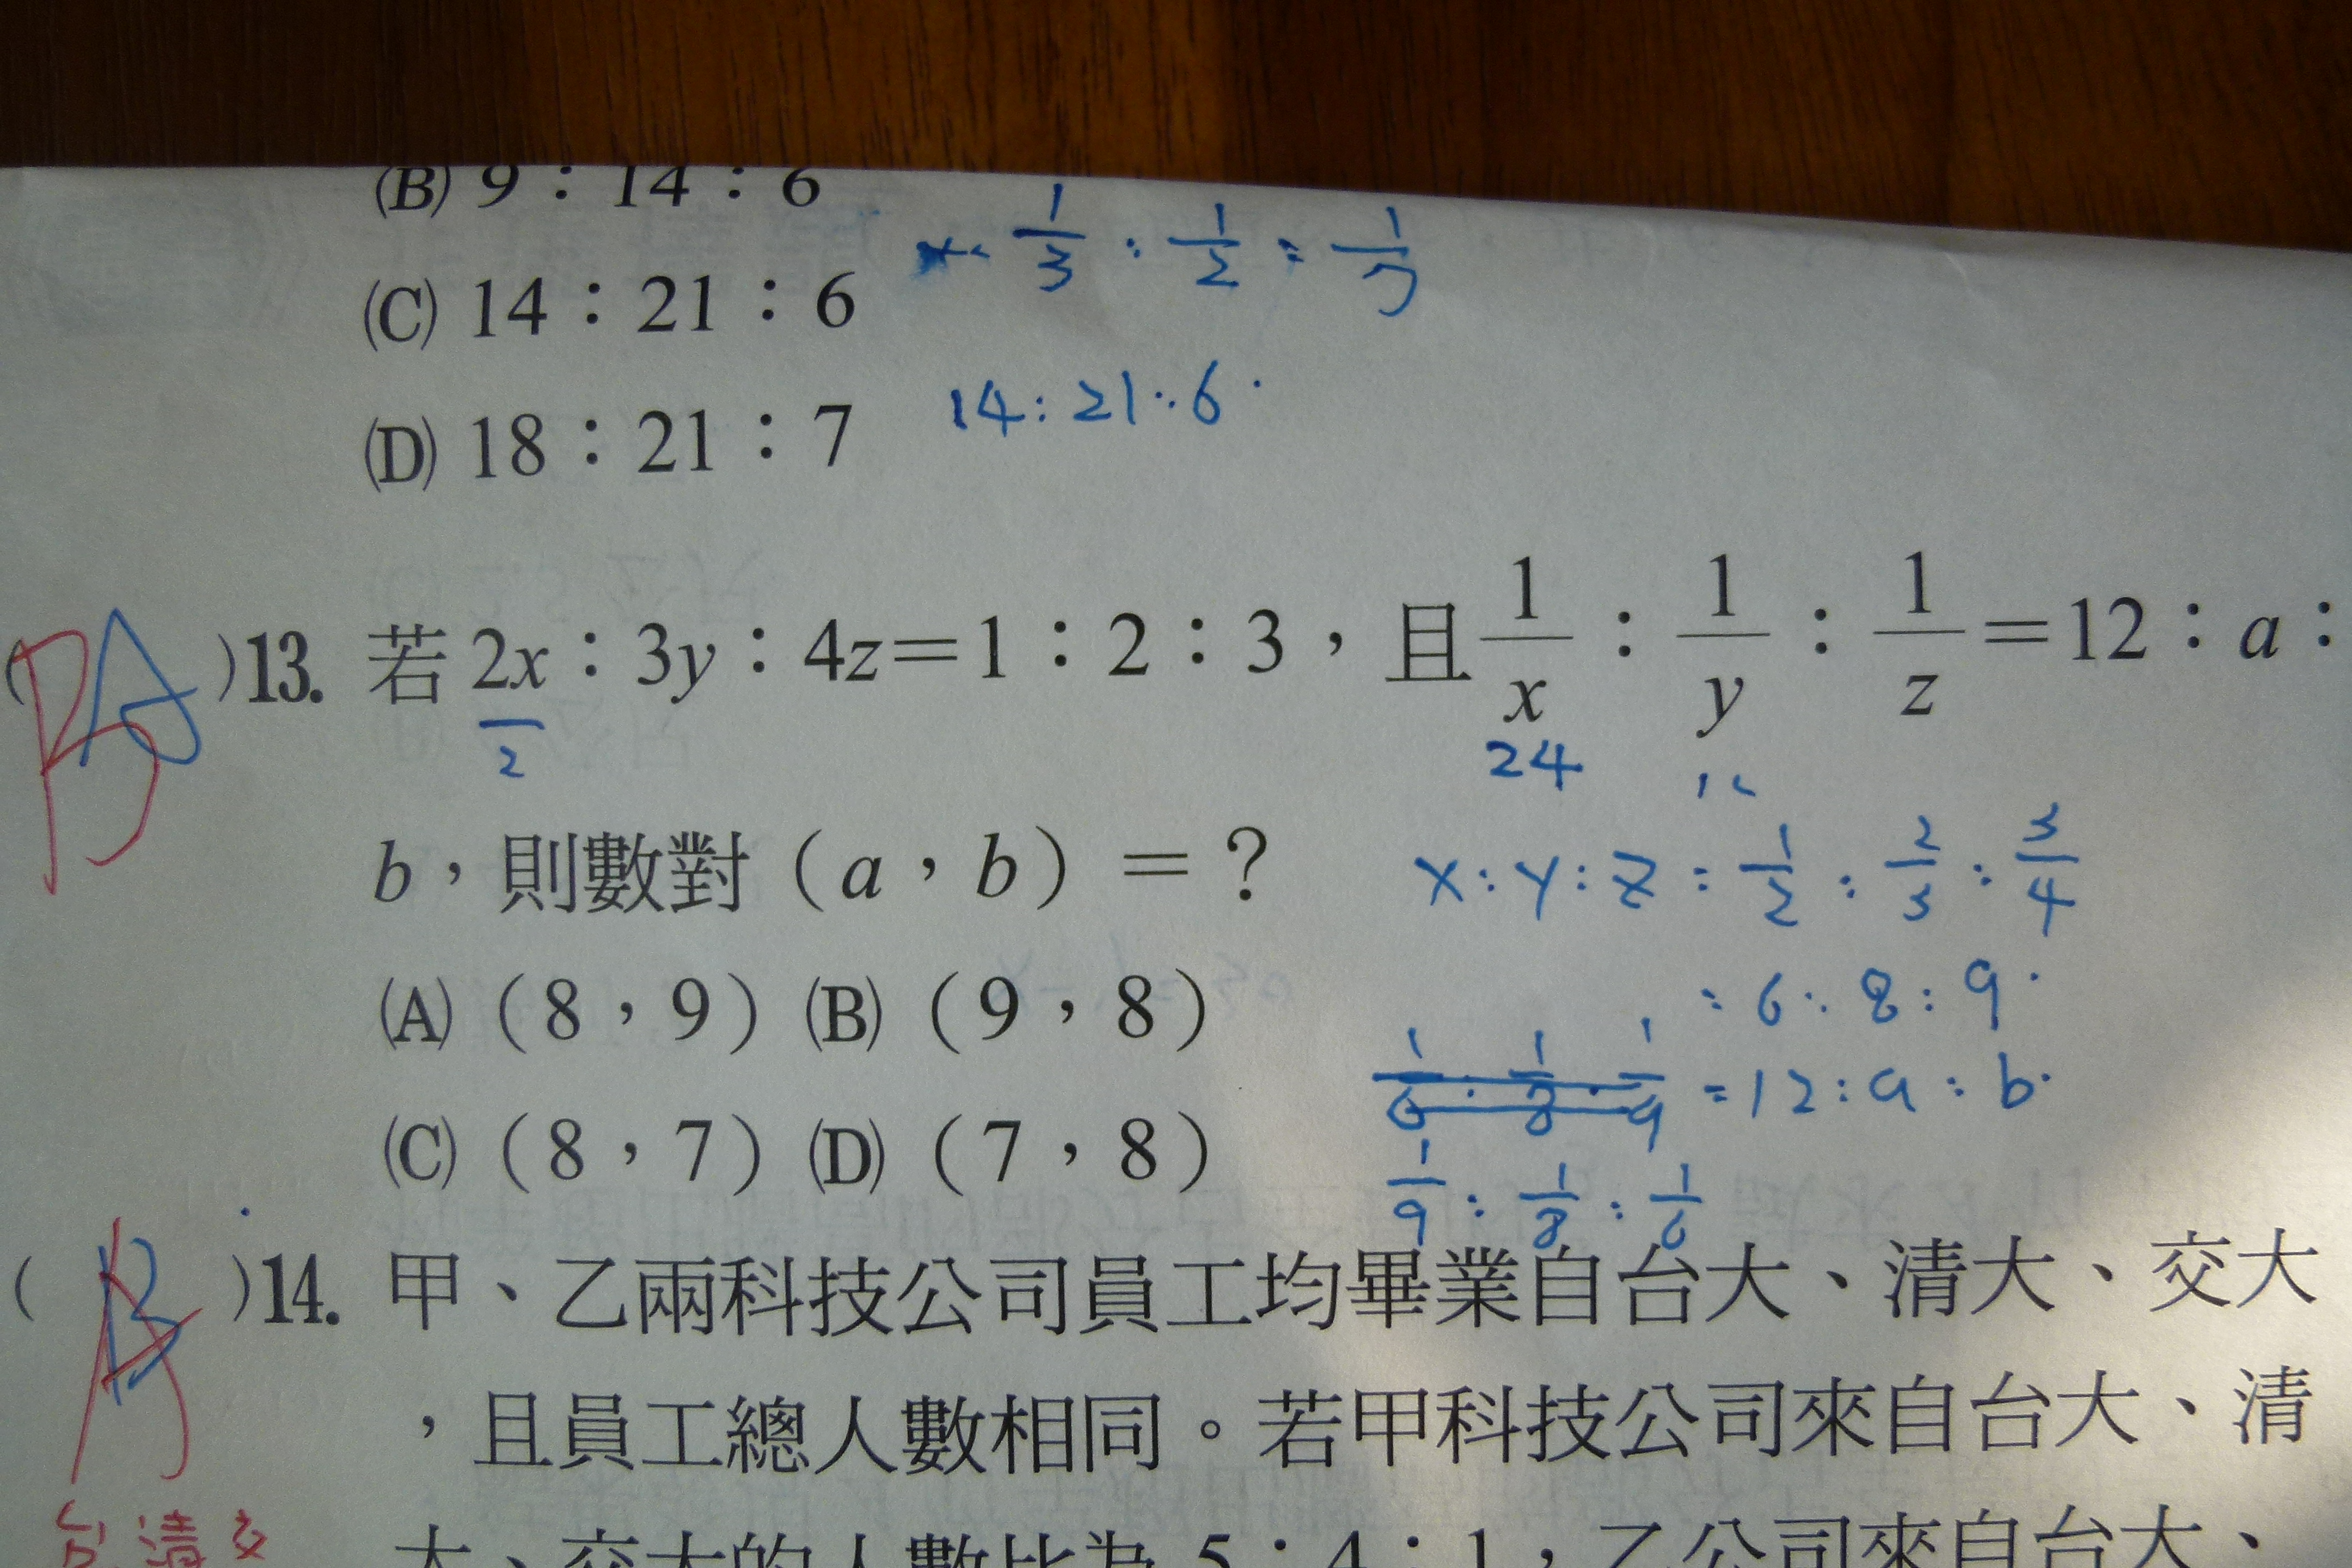 (B) 9：14：6
1/3 : 1/2 : 1/7
(C) 14：21：6
14:21:6
(D) 18：21：7
( B A )13. 若 2x：3y：4z=1：2：3，且 1/x：1/y：1/z=12：a：
2
24
12
b，則數對（a，b）=？
x:y:z = 1/2 : 2/3 : 3/4
(A)（8，9） (B)（9，8）
: 6 : 8 : 9
1/6 : 1/8 : 1/9 = 12 : a : b
(C)（8，7） (D)（7，8）
1/9 : 1/8 : 1/6
( A B )14. 甲、乙兩科技公司員工均畢業自台大、清大、交大
，且員工總人數相同。若甲科技公司來自台大、清
台 清 交
大、交大的人數比為 5：4：1，乙公司來自台大、